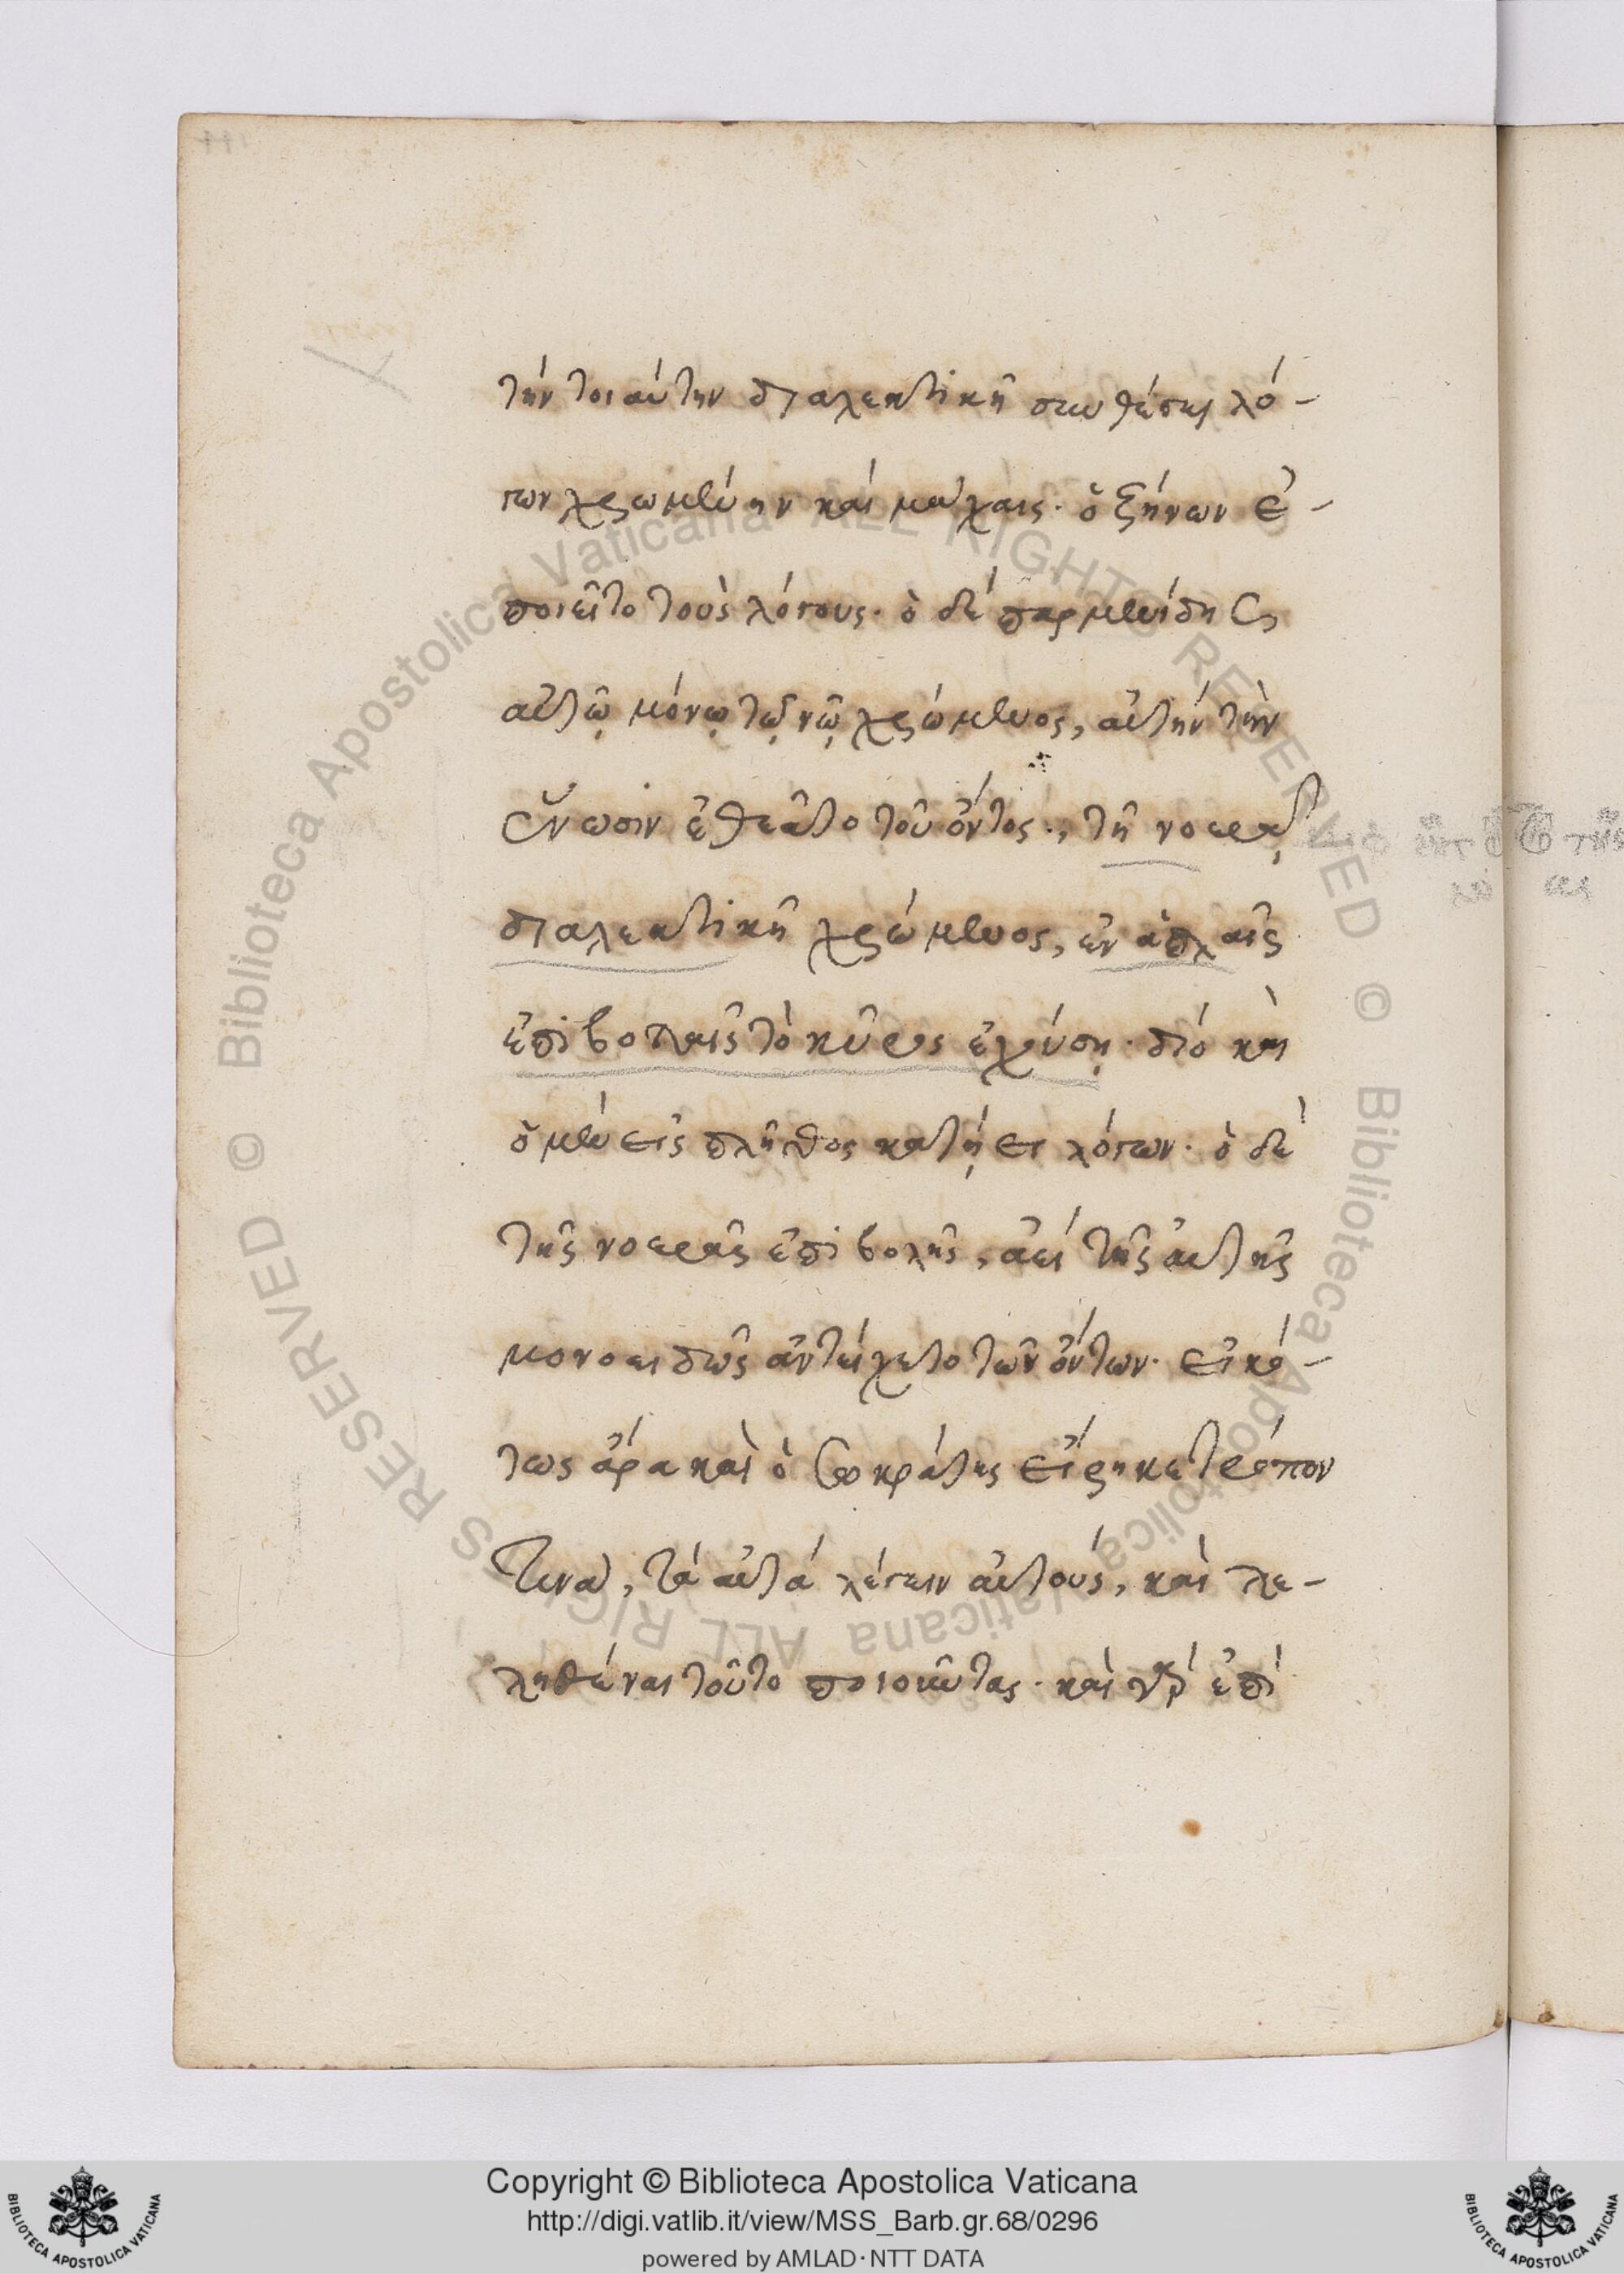 τὴν τοιαύτην διαλεκτικῆ συνθέσει λό-
γων χρωμένην καὶ μάχαις· ὁ ζήνων ἐ-
ποιεῖτο τοὺς λόγους· ὁ δέ παρμενίδης
αὐτῷ μόνῳ τῷ νῷ χρώμενος, αὐτήν τὴν
ἕνωσιν ἐθεᾶτο τοῦ ὄντος·, τῆ νοερᾷ
διαλεκτικῆ χρώμενος, ἐν ἁπλαῖς
ἐπιβολαῖς τὸ κῦρος ἐχούσῃ· διό καὶ
ὁ μέν εἰς πλῆθος κατῄει λόγων· ὁ δὲ
τῆς νοερᾶς ἐπιβολῆς, ἀεί τῆς αὐτῆς
μονοειδῶς ἀντείχετο τῶν ὄντων· εἰκό-
τως ἄρα καὶ ὁ σωκράτης εἴρηκε τρόπον
τινὰ, τά αὐτά λέγειν αὐτούς, καὶ λε-
ληθέναι τοῦτο ποιοῦντας· καὶ γάρ ἐπὶ
Copyright © Biblioteca Apostolica Vaticana
http://digi.vatlib.it/view/MSS_Barb.gr.68/0296
powered by AMLAD·NTT DATA